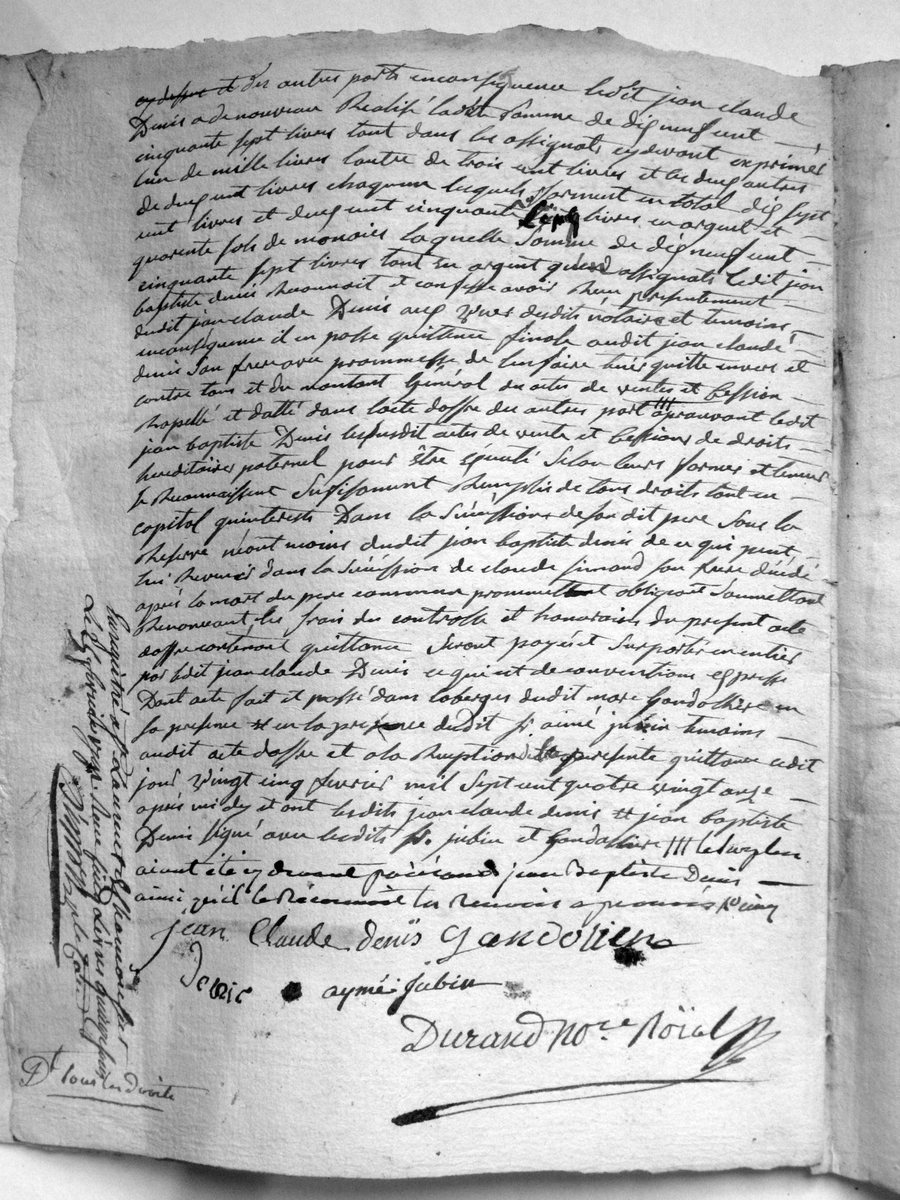 cy dessus et des autres parts en consequence ledit jean claude
Denis a de nouveau Realisé ladite Somme de dix neuf cent
cinquante sept livres tant dans les assignats cy devant exprimés
l'un de mille livres l'autre de trois cent livres et les deux autres
de deux cent livres chaqueun lesquels forment en total dix sept
cent livres et deux cent cinquante livres en argent et
quarente sols de monoies laquelle Somme de dix neuf cent
cinquante sept livres tant en argent qu'en assignats ledit jean
baptiste denis Reconnoit et confesse avoir Reçu presentement
dudit jean claude Denis aux vues desdits notaire et temoins
en conséquence il en passe quittance finale audit jean claude
denis son frere avec prommesse de l'en faire tenir quitte envers et
contre tous et du montant général des actes de ventes et Cession
Rapellé et datté dans l'acte d'offre des autres part /// ledit
jean baptiste Denis lesusdit actes de vente et Cessions de droits
hereditaires paternel pour être exequté Selon leurs forme et teneur
Se Reconnaissent Suffisament Remplis de tous droits tant en
capital qu'interests Dans la Succession de son dit pere Sous la
Reserve néant moins dudit jean baptiste denis de ce qui peut
lui Revenir dans la Succession de claude simand son frere décédé
après la mort du pere commun promettant obligeant Soumettant
Renonceant les frais du controlle et honoraires du present acte
d'offre contenant quittance Seront payés et Suportés en entier
par ledit jean claude Denis ce qui est de conventions expresse
Dont acte fait et passé dans l'auberges dudit marc Gandolliere en
sa presence et en la presence dudit sr. aimé jubin temoins
audit acte d'offre et a la Reception de la presente quittance ledit
jour vingt cinq fevrier mil sept cent quatre vingt onze
après midy et ont lesdits jean claude denis et jean baptiste
Denis signé avec lesdits sr. jubin et Gandolliere /// le surplus
aiant été cy devant jean Baptiste Denis
ainsi qu'il le Reconnoit les Renvois approuvés
jean Claude denis Gandoliere
denis aymé Jubin
Durand No.re Roïal
Dt tous les droits